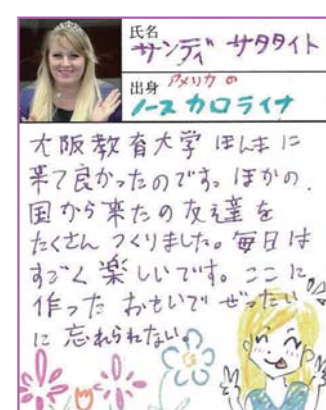 氏名
サンディ サタタイト
出身 アメリカ の
ノース カロライナ
大阪教育大学 ほんまに
来て良かったのです。ほかの
国から来たの友達を
たくさん つくりました。毎日は
すごく楽しいです。ここに
作った おもいで ぜったい
に 忘れられない。